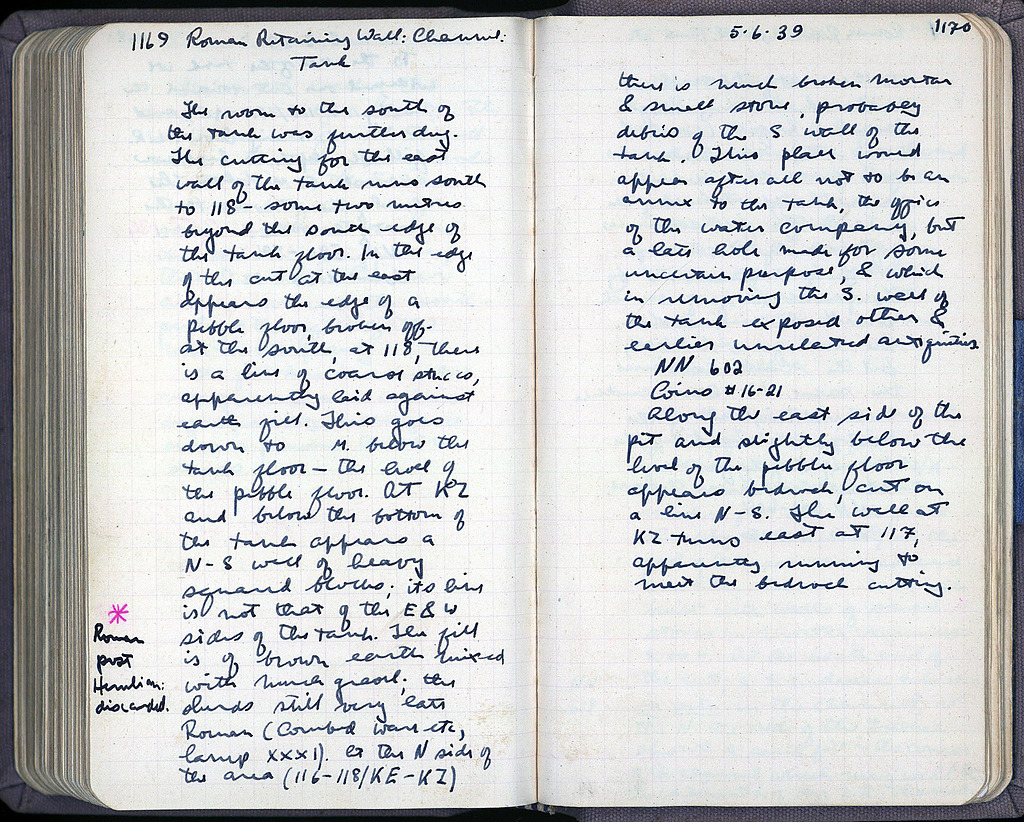 1169 Roman Retaining Wall: Channel:
Tank
The room to the south of
the tank was further dug.
The cutting for the east
wall of the tank runs south
to 118 - some two metres
beyond the south edge of
the tank floor. In the edge
of the cut at the east
appears the edge of a
pebble floor, broken off.
at the south, at 118, there
is a line of coarse stucco,
apparently laid against
earth fill. This goes
down to M. below the
tank floor - the level of
the pebble floor. At KZ
and below the bottom of
the tank appears a
N-S wall of heavy
squared blocks; its line
is not that of the E & W
sides of the tank. The fill
is of brown earth mixed
with much gravel; the
sherds still very late
Roman (Combed ware etc,
lamp XXXI). At the N side of
the area (116-118/KE-KZ)
*
Roman
post
Herulian:
discarded.
5-6-39 1170
there is much broken mortar
& small stone, probably
debris of the S wall of the
tank. This place would
appear after all not to be an
annex to the tank, the office
of the water company, but
a late hole made for some
uncertain purpose, & which
in removing the S. wall of
the tank exposed other &
earlier unrelated antiquities.
NN 602
Coins #16-21
Along the east side of the
pit and slightly below the
level of the pebble floor
appears bedrock, cut on
a line N-S. The wall at
KZ turns east at 117,
apparently running to
meet the bedrock cutting.